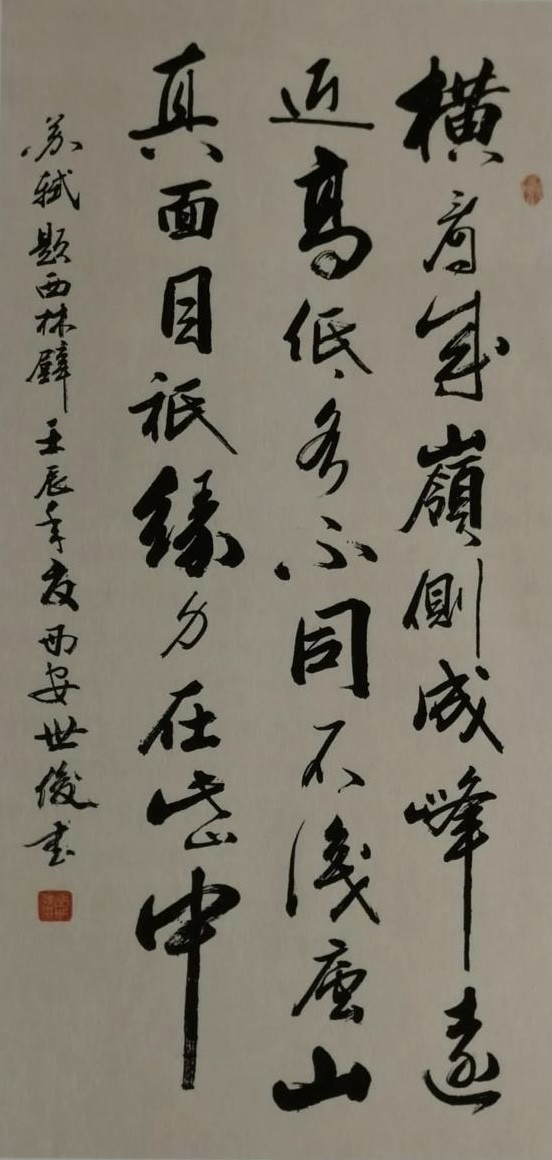 横看成嶺側成峰遠
近高低各不同不識廬山
真面目祇緣身在此山中
苏軾題西林壁壬辰年夜西安世俊書